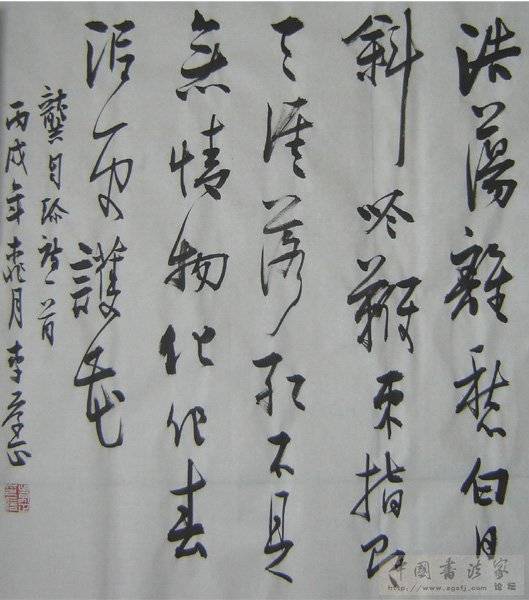 浩蕩離愁白日
斜吟鞭東指即
天涯落紅不是
無情物化作春
泥更護花
龔自珍詩一首
丙戌年月李正
中國書法家 论坛
http://www.zgsfj.com